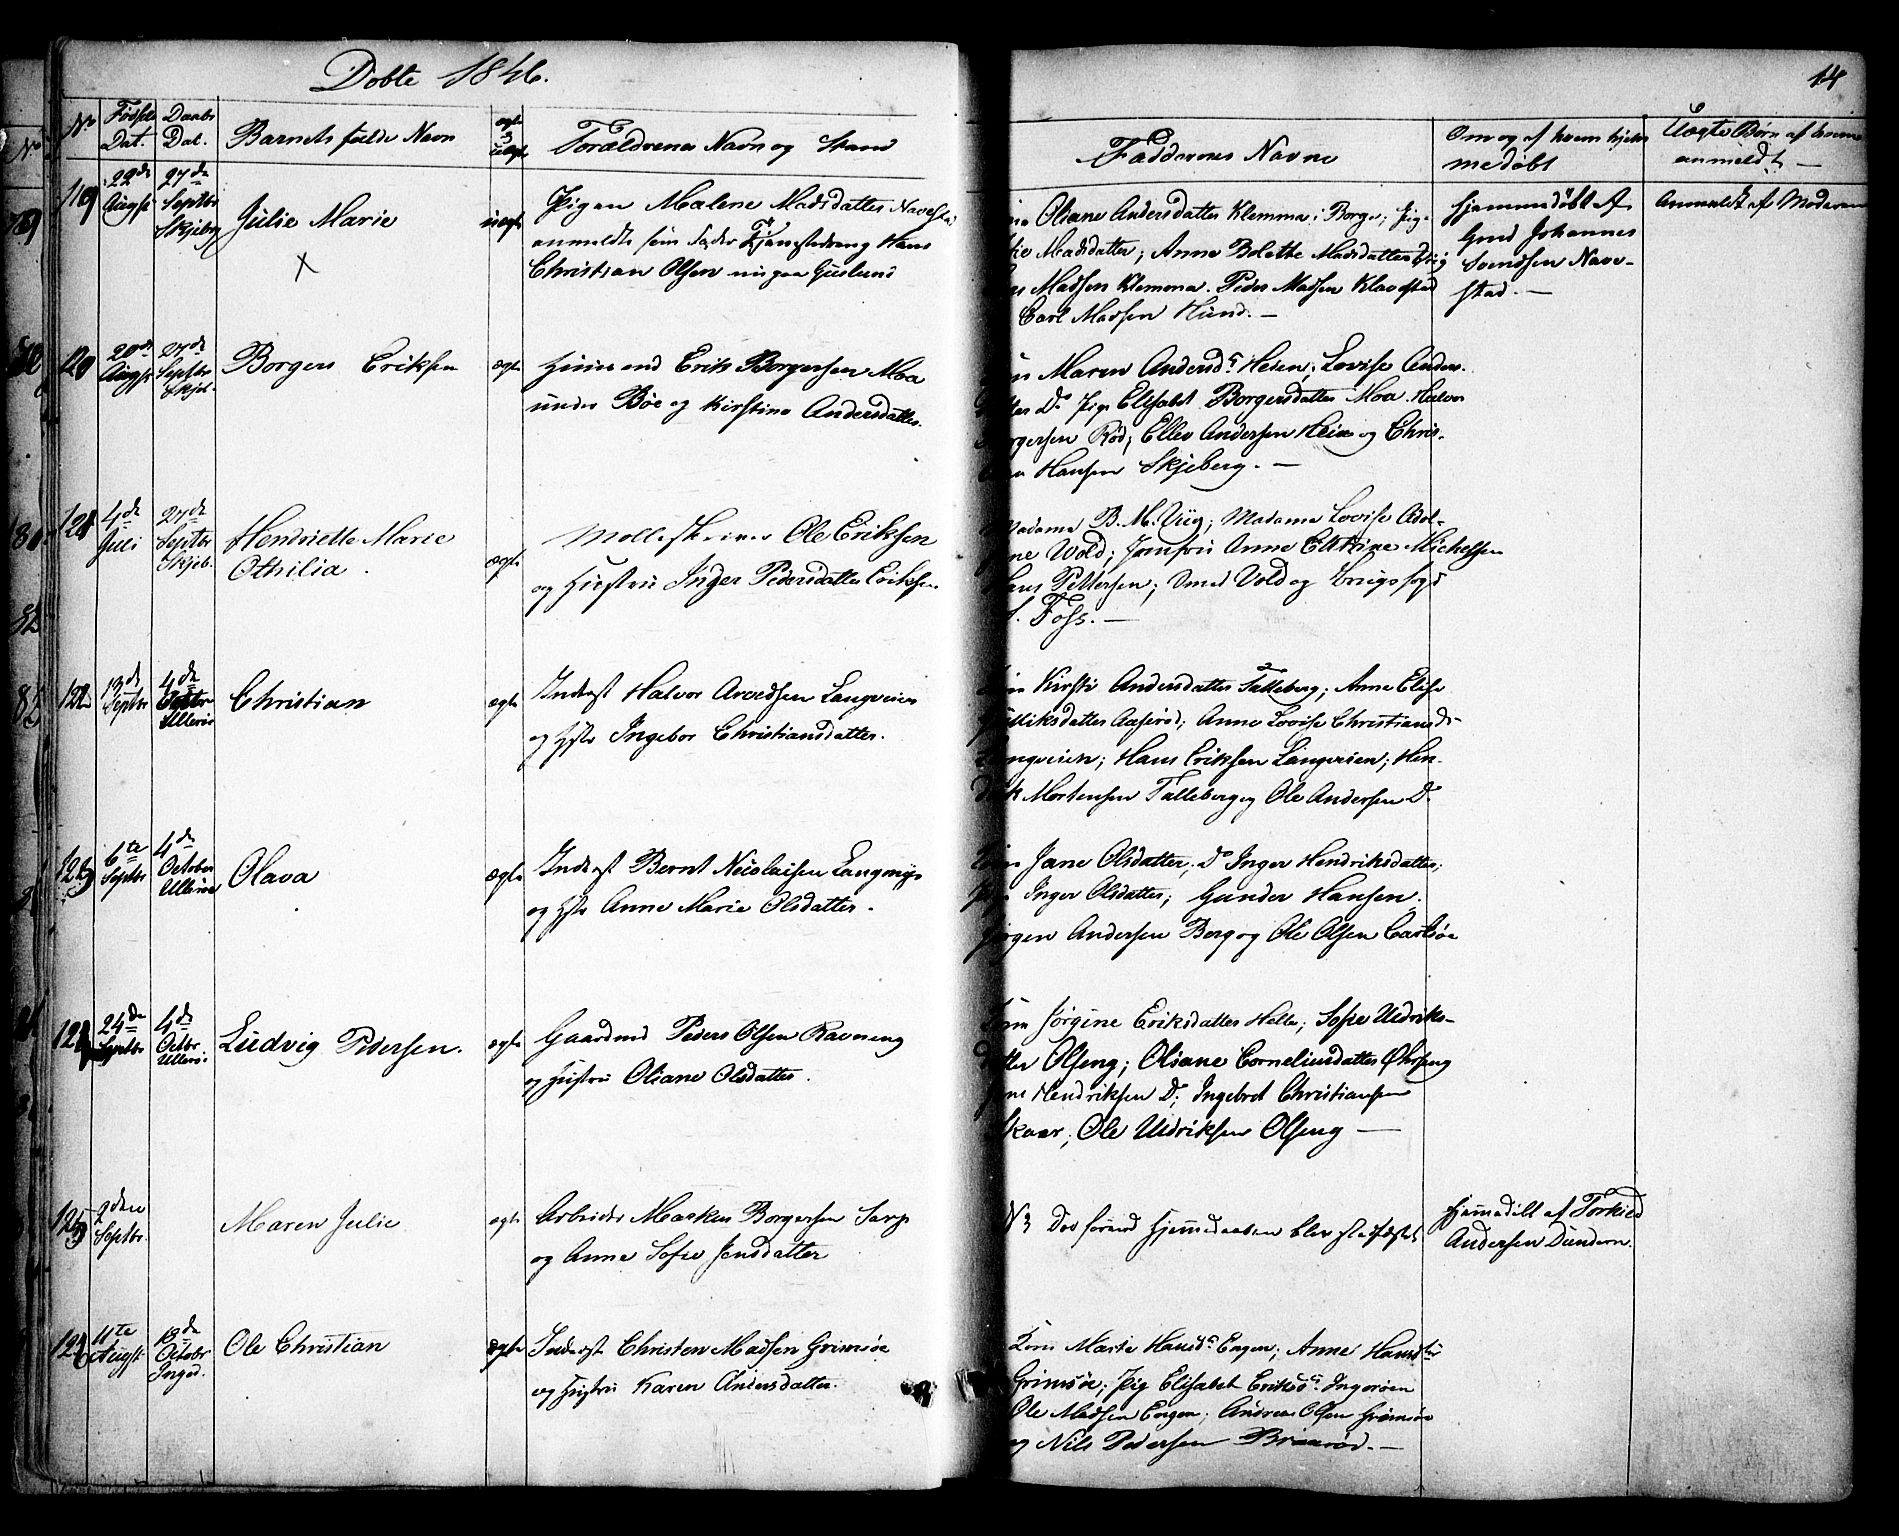 Døbte 1846.
14
No
Fødsels Dat.
Daabs Dat.
Barnets fulde Navn
ægte
uægte
Forældrenes Navn og Stand
Faddernes Navne
Om og af hvem hjem-
medøbt
Uægte Børn af hvem
anmeldt —
119
22de Augst
27de Septbr Skjeberg
Julie Marie
uægte
Pigen Malene Madsdatter Navestad
anmeldte som Fader Tjenestedreng Hans
Christian Olsen
Oliane Andersdatter Klemma i Borge; Pige
Madsdatter; Anne Bolette Madsdatter
Madsen Klemma. Peder Madsen Klavestad
Carl Madsen Hund. —
Hjemmedøbt af
Gmd Johannes
Svendsen Nave-
stad. —
Anmeldt af Moderen
120
20de Augst
27de Septbr Skjeb.
Borger Eriksen
ægte
Huusmand Erik Borgersen Moa
under Bøe og Kirstine Andersdatter.
Maren Andersd. Heien; Lovise Anders-
datter Do Pige Elisabet Borgersdatter Moa. Halvor
Borgersen Rød; Ellev Andersen Heia og Chris-
Hansen Skjeberg. —
121
4de Juli
27de Septbr Skjeb.
Henriette Marie
Othilia.
ægte
Mølleskriver Ole Eriksen
og Hustru Inger Pedersdatter Eriksen.
Madame B. M. Viig; Madame Lovise Adol-
Wold; Jomfru Anne Michelsen
Hans Pettersen; Vold og
Foss. —
122
13de Septbr
4de Octbr Ullerø
Christian
ægte
Inderst Halvor Arvedsen Langveien
og Hstr Ingebor Christiansdatter.
Kirsti Andersdatter Talleberg; Anne Elise
Aaserød; Anne Lovise Christiansd.
Langveien; Hans Eriksen Langveien; Hen-
drik Mortensen Talleberg og Ole Andersen Do
123
6te Septbr
4de October Ullerøe
Olava
ægte
Inderst Bernt Nicolaisen Langmyr
og Hstr Anne Marie Olsdatter.
Jane Olsdatter; Do Inger Hendriksdatter;
Pige Inger Olsdatter; Gunder Hansen;
Jørgen Andersen Berg og Ole Olsen
124
24de Septbr
4de Octbr Ullerøe
Ludvig Pedersen.
ægte
Gaardmd Peder Olsen Ravneng
og Hustru Oliane Olsdatter.
Jørgine Eriksdatter Helle; Sofie Uldriks-
datter Olseng; Oliane Corneliusdatter
Hendriksen Do; Ingebret Christiansen
Skaar; Ole Uldriksen Olseng —
125
2den Septbr.
Maren Julie
ægte
Arbeider Markus Borgersen Sarp
og Anne Sofie Jensdatter
Død forend Hjemmedaaben blev stadfæstet
Hjemmedøbt af Torkild
Andersen
126
11te Augst
18de Octobr Inged.
Ole Christian
ægte
Inderst Christen Madsen Grimsøe
og Hustru Karen Andersdatter.
Kone Marte Hansd. Engen; Anne Hansdtr
Grimsøe; Pig Elisabet Eriksd. Ingerøen
Ole Madsen Engen; Andreas Olsen Grimsøe
og Nils Pedersen —